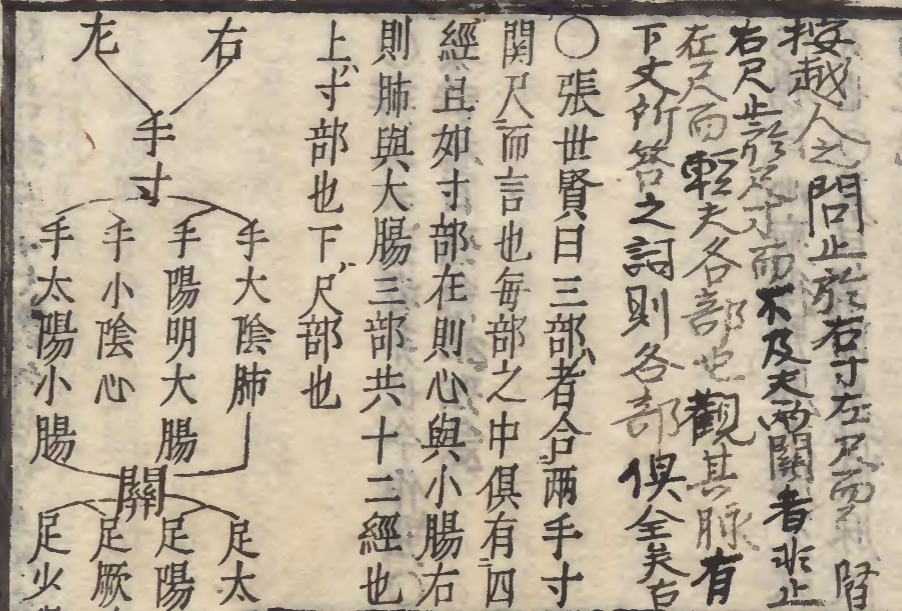 按越人之問止於右寸左尺而
右尺止於尺寸而不及夫兩關者非止
在尺而輕夫各部也觀其脉有
下文所答之詞則各部俱全矣古
〇張世賢曰三部者合兩手寸
関尺而言也每部之中俱有四
經且如寸部在則心與小腸右
則肺與大腸三部共十二經也
上寸部也下尺部也
右
左
手寸
手太陰肺
手陽明大腸
手小陰心
手太陽小腸
關
足太
足陽
足厥
足少